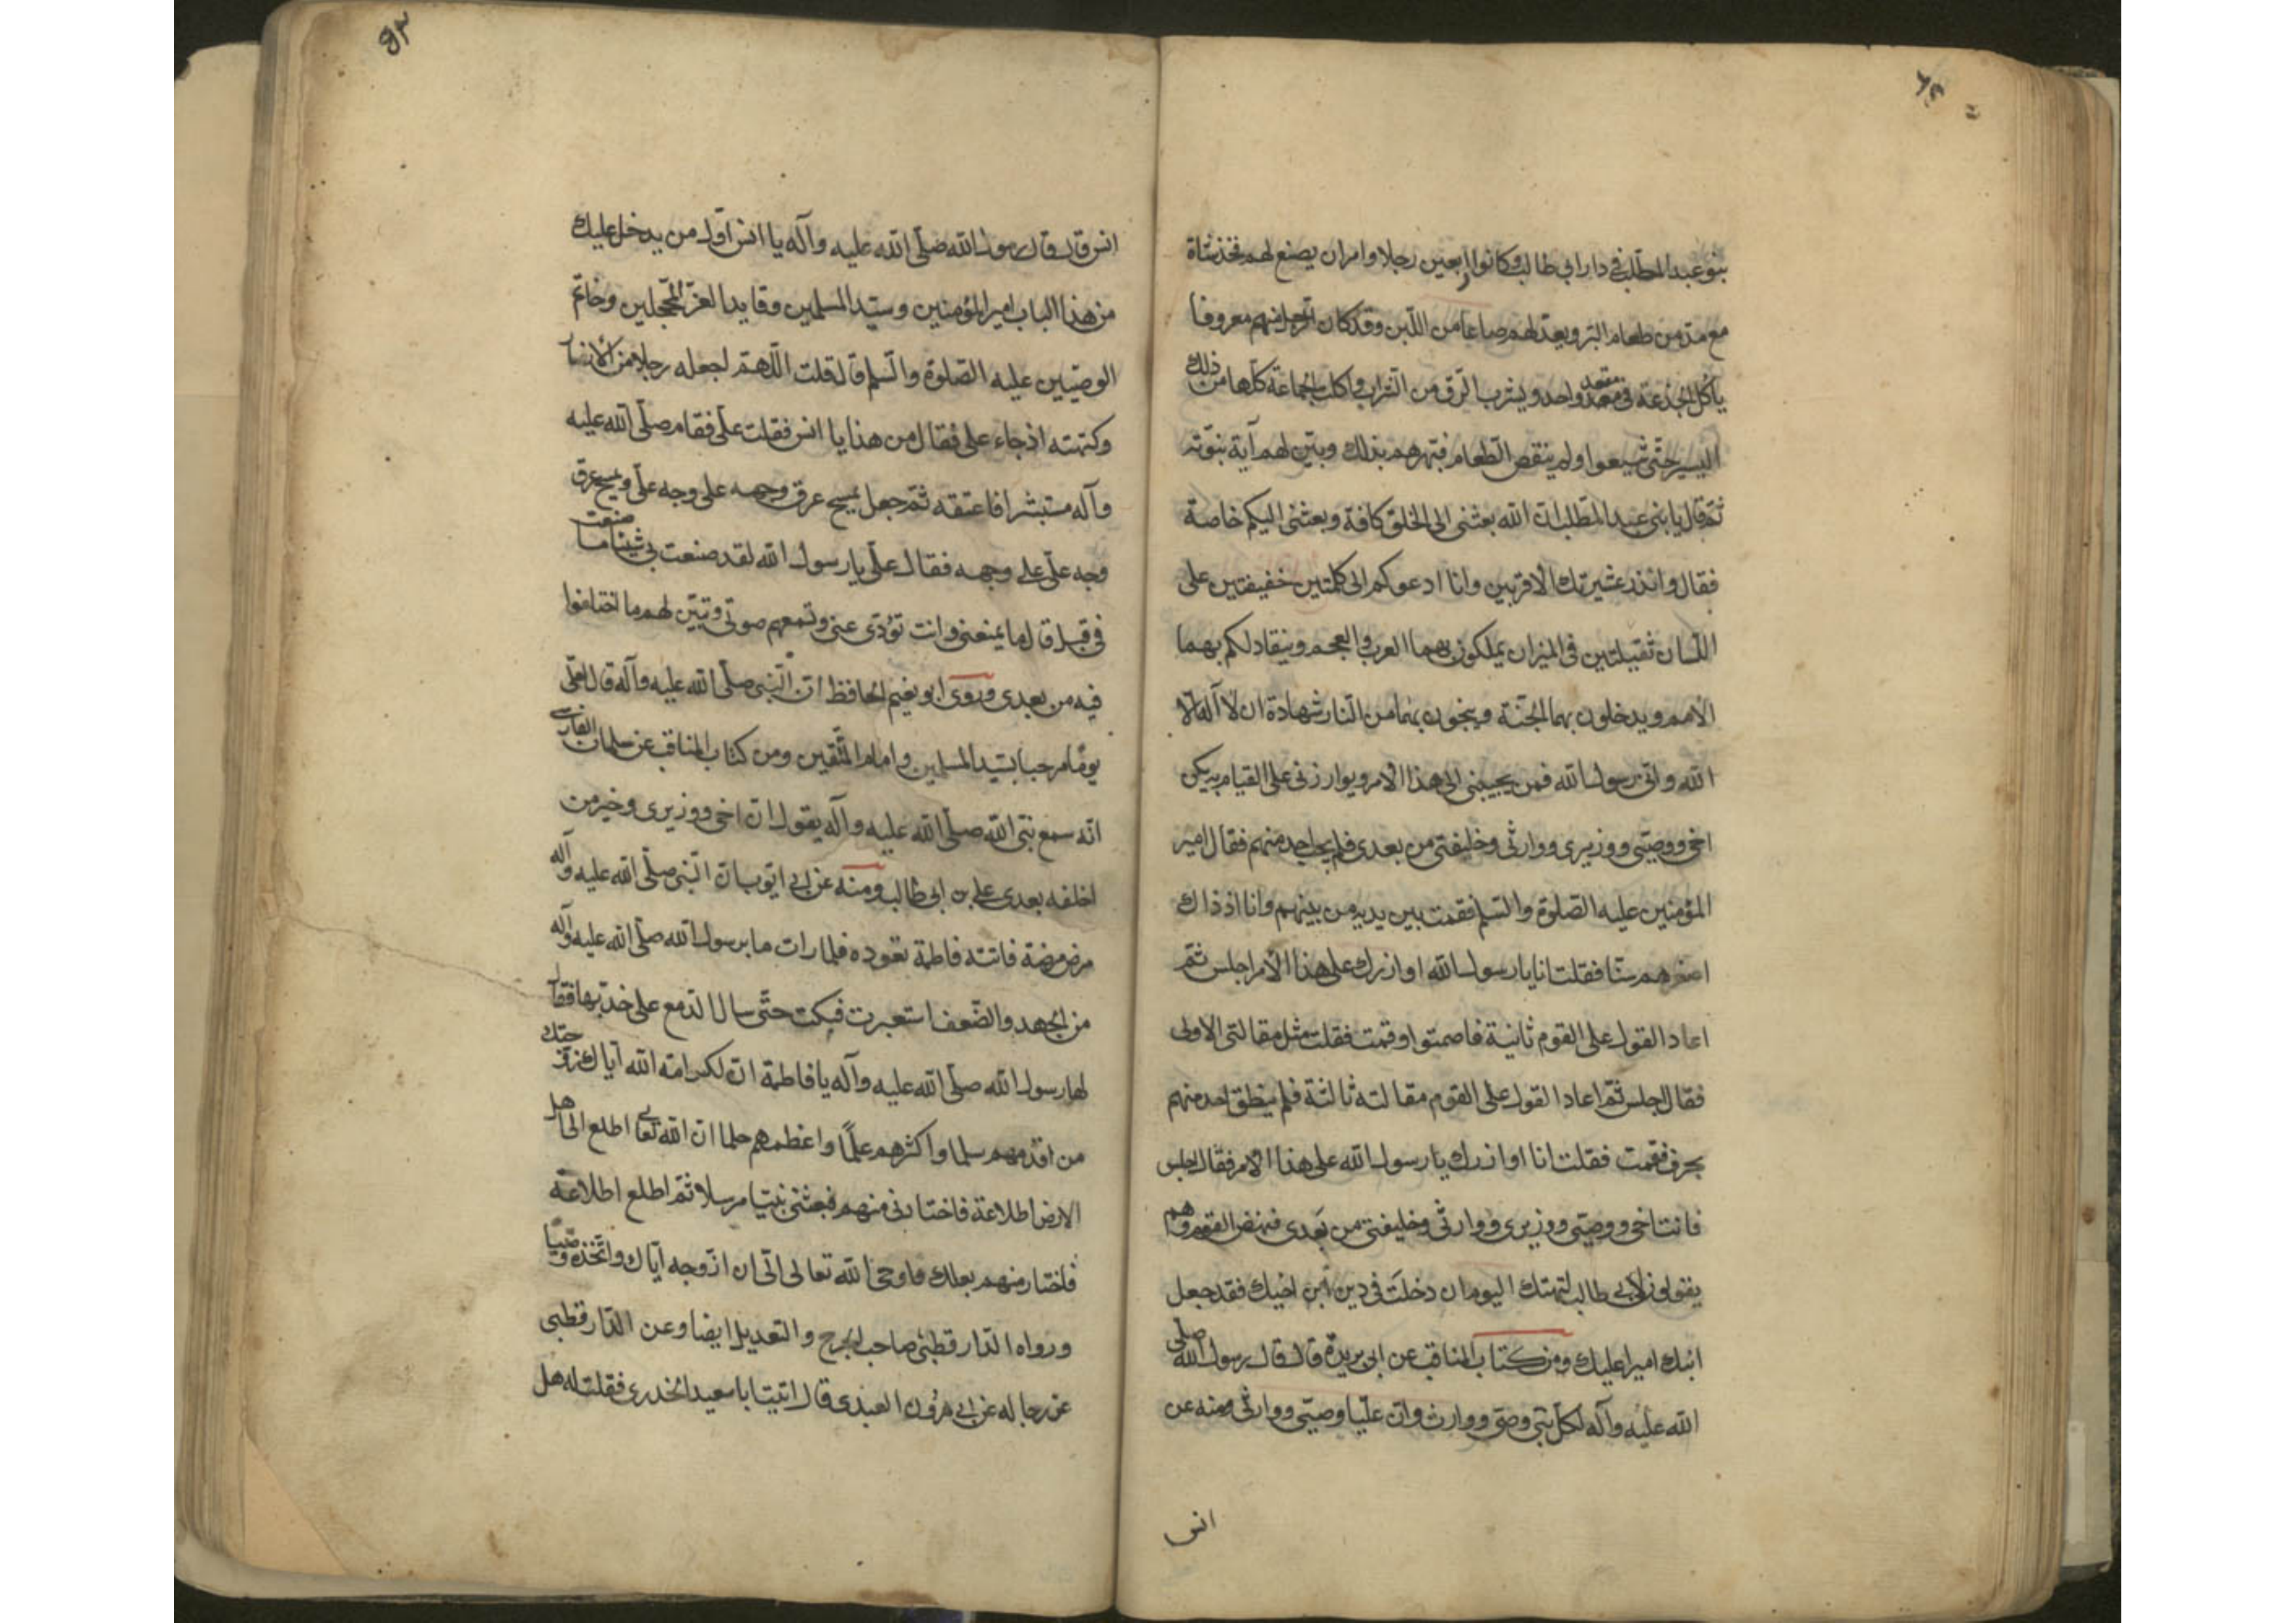 بنو عبد المطلب في دار ابي طالب وكانوا اربعين رجلا وامر ان يصنع لهم فخذ شاة
مع مدّ من طعام البر ويعدّ لهم صاعا من اللّبن وقد كان الرجل منهم معروفا
ياكل الجذعة في مقعد واحد ويشرب الزّق من الشراب فاكلت الجماعة كلّها من ذلك
اليسير حتّى شبعوا ولم ينقص الطّعام فبهرهم بذلك وبيّن لهم آية نبوّته
ثمّ قال يا بني عبد المطّلب انّ الله بعثني الى الخلق كافة وبعثني اليكم خاصة
فقال وانذر عشيرتك الاقربين وانا ادعوكم الى كلمتين خفيفتين على
اللّسان ثقيلتين في الميزان تملكون بهما العرب والعجم وينقاد لكم بهما
الامم ويدخلون بهما الجنّة وينجون بهما من النّار شهادة ان لا اله الا
الله وانّي رسول الله فمن يجيبني الى هذا الامر ويوازرني على القيام به يكن
اخي ووصيّي ووزيري ووارثي وخليفتي من بعدي فلم يجب احد منهم فقال امير
المؤمنين عليه الصّلوة والسّلم فقمت بين يديه من بينهم وانا اذ ذاك
اصغرهم سنّا فقلت انا يا رسول الله اوازرك على هذا الامر اجلس ثمّ
اعاد القول على القوم ثانية فاصمتوا وقمت فقلت مثل مقالتي الاولى
فقال اجلس ثمّ اعاد القول على القوم مقالته ثالثة فلم ينطق احد منهم
بحرف فقمت فقلت انا اوازرك يا رسول الله على هذا الامر فقال اجلس
فانت اخي ووصيّي ووزيري ووارثي وخليفتي من بعدي فنهض القوم وهم
يقولون لابي طالب لتهنك اليوم ان دخلت في دين ابن اخيك فقد جعل
ابنك اميرا عليك ومن كتاب المناقب عن ابي بريدة قال قال رسول الله صلى
الله عليه وآله لكلّ نبيّ وصيّ ووارث وانّ عليّا وصيّي ووارثي ومنه عن
انس
انس قال قال رسول الله صلّى الله عليه وآله يا انس اوّل من يدخل عليك
من هذا الباب امير المؤمنين وسيّد المسلمين وقايد الغرّ المحجلين وخاتم
الوصيّين عليه الصّلوة والسّلم قال قلت اللّهمّ اجعله رجلا من الانصار
وكتمته اذ جاء على فقال من هذا يا انس فقلت علي فقام صلّى الله عليه
وآله مستبشرا فاعتنقه ثمّ جعل يمسح عرق وجهه على وجه علي ويمسح عرق
وجه عليّ على وجهه فقال علي يا رسول الله لقد صنعت بي شيئا ما صنعت
في قبل قال وما يمنعني وانت تؤدّى عنى وتسمعهم صوتي وتبيّن لهم ما اختلفوا
فيه من بعدي وروى ابو نعيم الحافظ انّ النّبي صلّى الله عليه وآله قال لعلي
يوما مرحبا بسيّد المسلمين وامام المتّقين ومن كتاب المناقب عن سلمان الفارسي
انّه سمع نبيّ الله صلّى الله عليه وآله يقول انّ اخي ووزيري وخير من
اخلفه بعدي علي بن ابي طالب ومنه عن ابي ايّوب انّ النّبي صلّى الله عليه وآله
مرض مرضة فاتته فاطمة تعوده فلما رات ما برسول الله صلّى الله عليه وآله
من الجهد والضّعف استعبرت فبكت حتّى سال الدّمع على خدّيها فقال
لها رسول الله صلّى الله عليه وآله يا فاطمة انّ لكرامة الله ايّاك زوّجتك
من اقدمهم سلما واكثرهم علمًا واعظمهم حلما ان الله تعالى اطلع الى اهل
الارض اطلاعة فاختارني منهم فبعثني نبيّا مرسلا ثمّ اطلع اطلاعة
فاختار منهم بعلك فاوحى الله تعالى الىّ ان ازوجه ايّاك واتّخذه وصيّا
ورواه الدّارقطني صاحب الجرح والتعديل ايضا وعن الدّارقطنى
عن رجاله عن ابي هرون العبدى قال اتيت ابا سعيد الخدري فقلت له هل